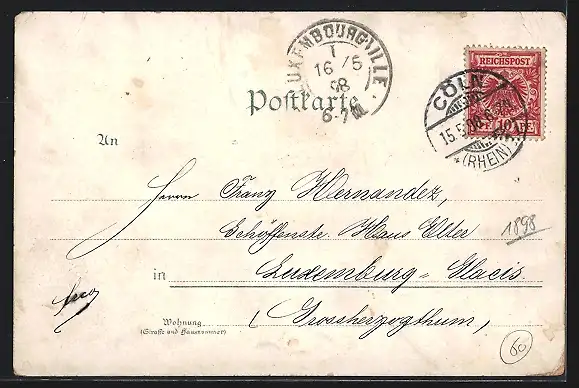 LUXEMBOURG-VILLE
1
16/5
98
6-7
REICHSPOST
10 PF
CÖLN
15.5.98
*(RHEIN)
Postkarte
An
Herrn Franz Hernandez,
Schöffenstr. Haus Elter
in Luxemburg-Glacis
(Grossherzogthum)
Wohnung
(Straße und Hausnummer)
1898
60